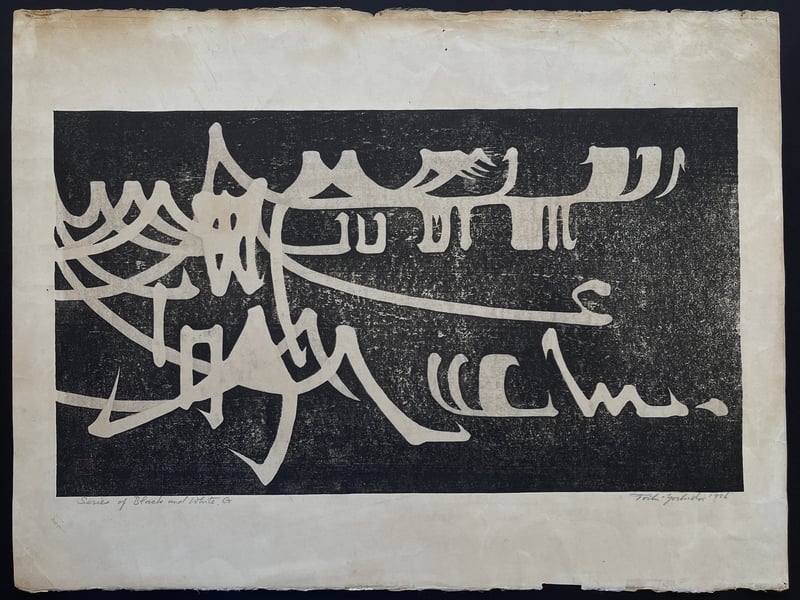 Series of Black and White, G
Toshi Yoshida '956